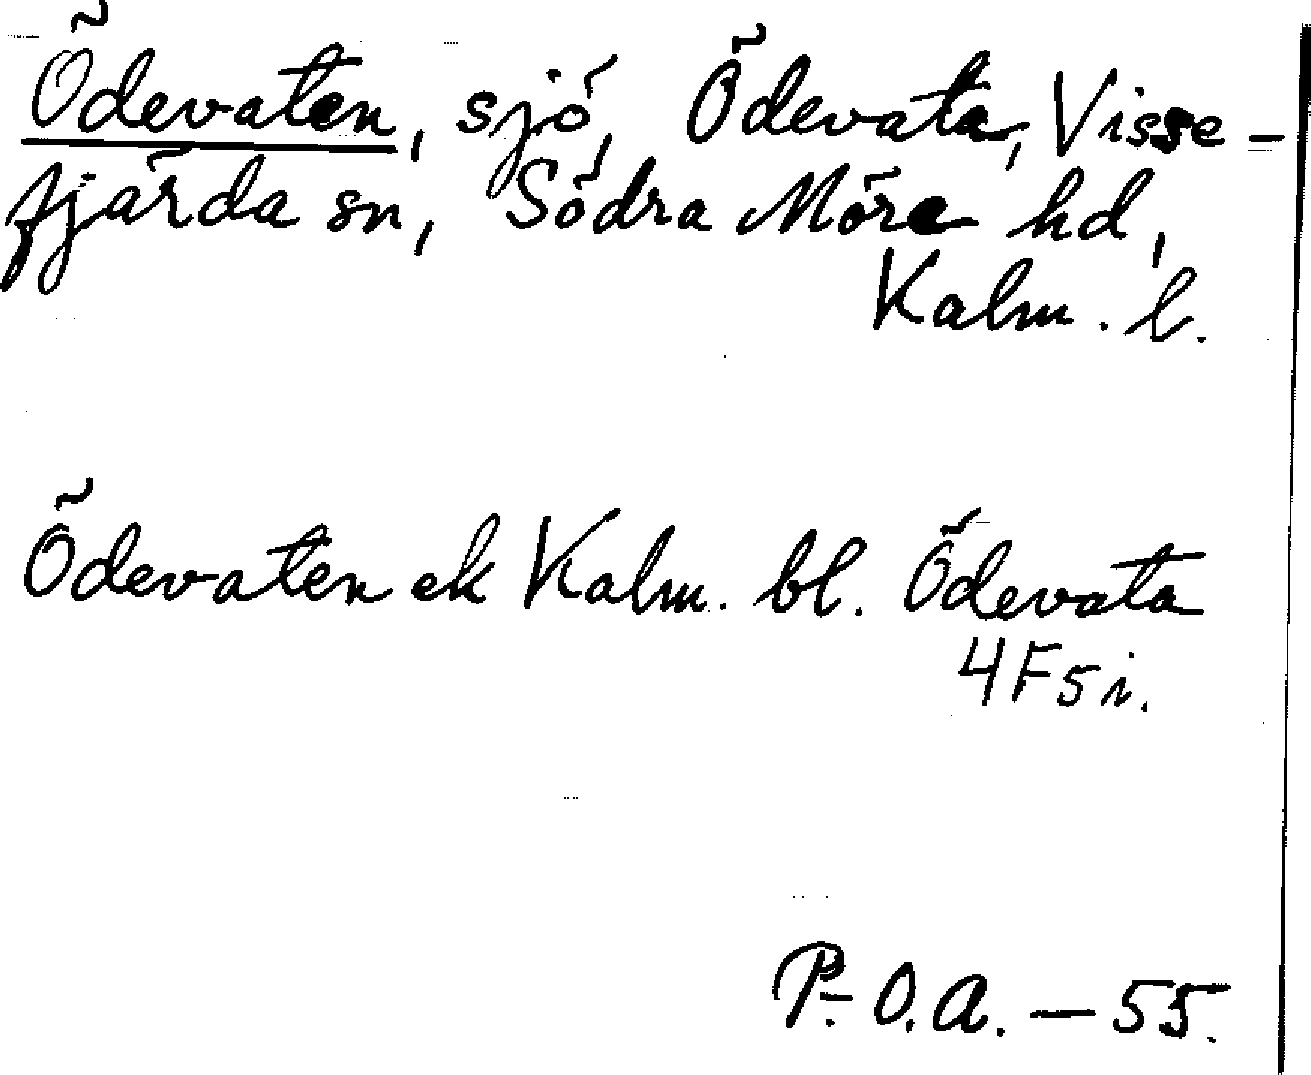 Ödevaten, sjö, Ödevata, Visse-
fjärda sn, Södra Möre hd,
Kalm. l.
Ödevaten ek Kalm. bl. Ödevata
4F5i.
P.-O.A. — 55.